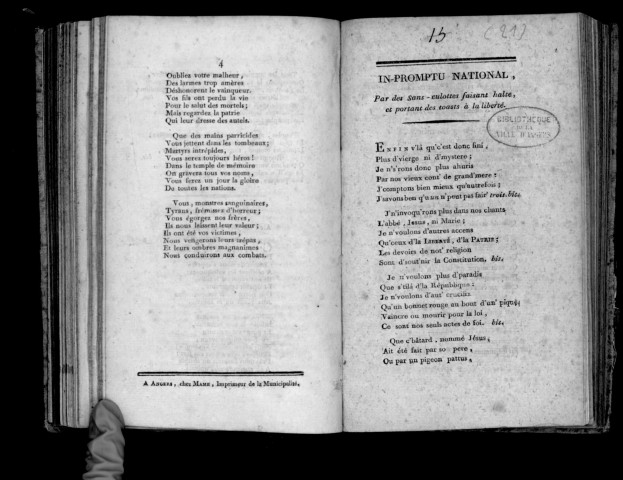 4
Oubliez votre malheur,
Des larmes trop amères
Déshonorent le vainqueur.
Vos fils ont perdu la vie
Pour le salut des mortels;
Mais regardez la patrie
Qui leur dresse des autels.
Que des mains parricides
Vous jettent dans les tombeaux;
Martyrs intrépides,
Vous serez toujours héros!
Dans le temple de mémoire
On gravera tous vos noms,
Vous ferez un jour la gloire
De toutes les nations.
Vous, monstres sanguinaires,
Tyrans, frémissez d'horreur;
Vous égorgez nos frères,
Ils nous laissent leur valeur;
Ils ont été vos victimes,
Nous vengerons leurs trépas,
Et leurs ombres magnanimes
Nous conduiront aux combats.
A ANGERS, chez MAME, Imprimeur de la Municipalité,
15 (21)
IN-PROMPTU NATIONAL,
Par des Sans-culottes faisant halte,
et portant des toasts à la liberté.
BIBLIOTHÈQUE
DE LA
VILLE D'ANGERS
ENFIN v'là qu'est donc fini,
Plus d'vierge ni d'mystere;
Je n's'rons donc plus ahuris
Par nos vieux cont' de grand'mere:
J'comptons bien mieux qu'autrefois;
J'savons ben qu'un n'peut pas fair' trois. bis.
J'n'invoqu'rons plus dans nos chants
L'abbé, Jesus, ni Marie;
Je n'voulons d'autres accens
Qu'ceux d'la LIBERTÉ, d'la PATRIE;
Les devoirs de not' religion
Sont d'sout'nir la Constitution. bis.
Je n'voulons plus d'paradis
Que s'tilà d'la République:
Je n'voulons d'aut' crucifix
Qu'un bonnet rouge au bout d'un' pique;
Vaincre ou mourir pour la loi,
Ce sont nos seuls actes de foi. bis.
Que c'bâtard, nommé Jésus,
Ait été fait par so pere,
Ou par un pigeon pattus,